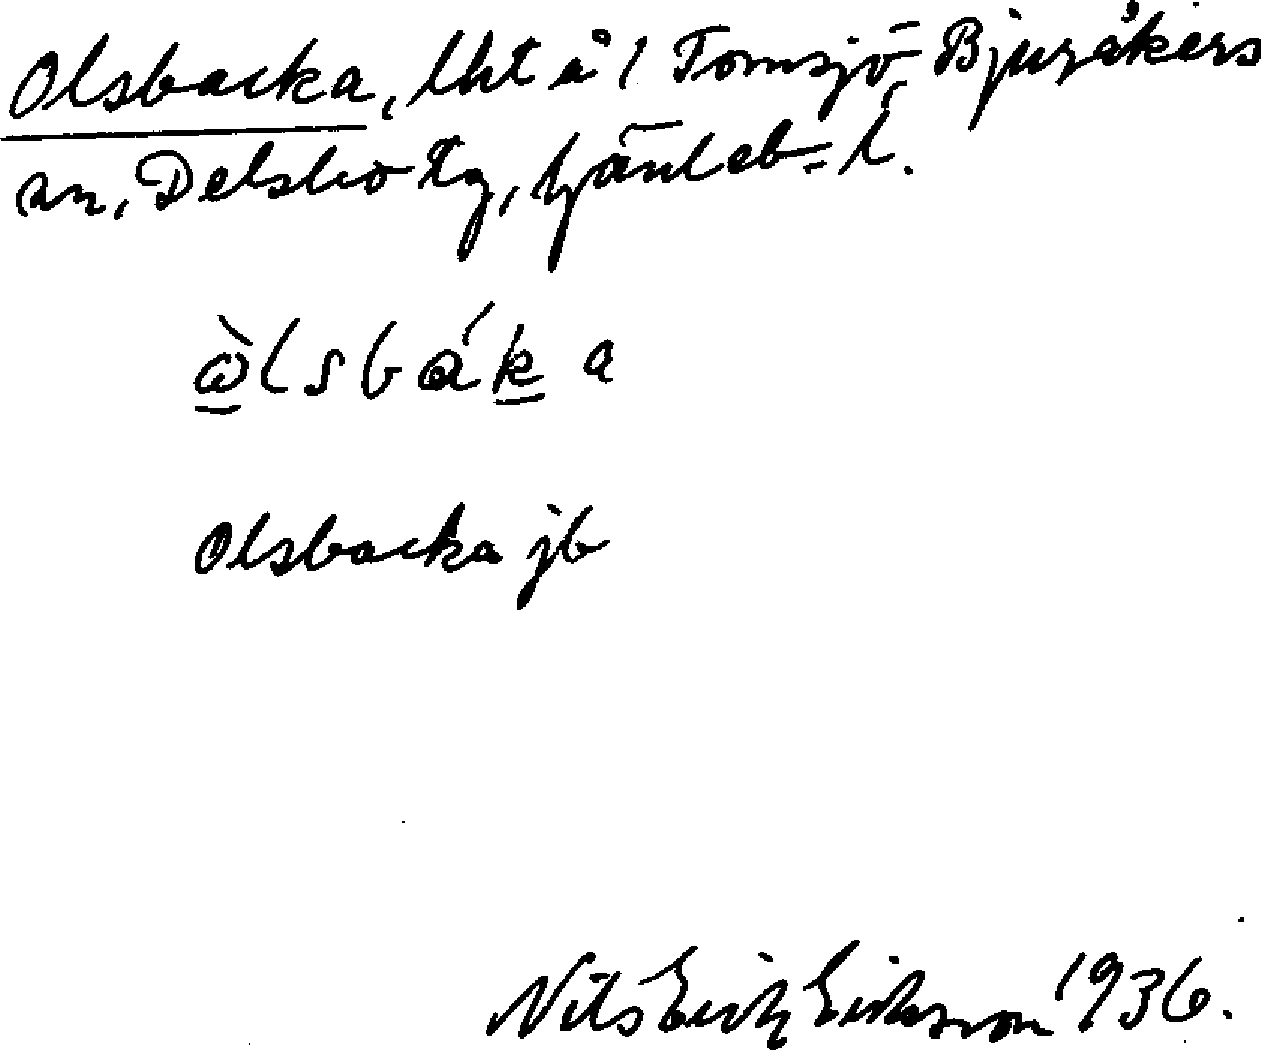 Olsbacka, lht å 1 Tomsjö, Bjuråkers
sn, Delsbo tg, Gävleb=l.
òlsbáka
Olsbacka jb
Nils Erik Eriksson 1936.